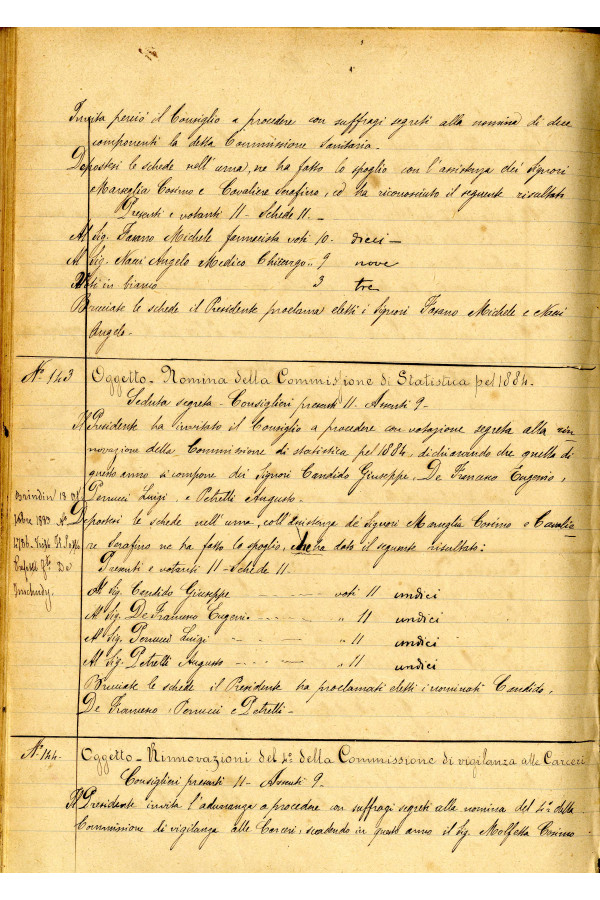 Invita perciò il Consiglio a procedere con suffragi segreti alla nomina di due
componenti la detta Commissione Sanitaria.
Depostesi le schede nell'urna, ne ha fatto lo spoglio con l'assistenza dei Signori
Marseglia Cosimo e Cavaliere Serafino, ed ha riconosciuto il seguente risultato
Presenti e votanti 11 - Schede 11. -
Al Sig. Fasano Michele farmacista voti 10. dieci -
Al Sig. Nassi Angelo Medico Chirurgo „ 9 nove
Voti in bianco 3 tre
Bruciate le schede il Presidente proclama eletti i Signori Fasano Michele e Nassi
Angelo.
N.° 143 Oggetto - Nomina della Commissione di Statistica pel 1884.
Seduta segreta - Consiglieri presenti 11 - Assenti 9 -
Il Presidente ha invitato il Consiglio a procedere con votazione segreta alla rin-
novazione della Commissione di statistica pel 1884, dichiarando che quella di
questo anno si compone dei Signori Candido Giuseppe, De Franceso Eugenio,
Perrucci Luigi, e Petrelli Augusto.
Brindisi 18
1883 N.°
Visto Il
De
Depostesi le schede nell'urna, coll'assistenza de' Signori Marseglia Cosimo e Cavalie-
re Serafino ne ha fatto lo spoglio, che ha dato il seguente risultato:
Presenti e votanti 11 - Schede 11.
Al Sig. Candido Giuseppe - - - - voti 11 undici
Al Sig. De Franceso Eugenio - - - - „ 11 undici
Al Sig. Perrucci Luigi - - - „ 11 undici
Al Sig. Petrelli Augusto - - - „ 11 undici
Bruciate le schede il Presidente ha proclamati eletti i nominati Candido,
De Franceso, Perrucci e Petrelli -
N.° 144. Oggetto - Rinnovazioni del ¼° della Commissione di vigilanza alle Carceri
Consiglieri presenti 11 - Assenti 9.
Il Presidente invita l'adunanza a procedere con suffragi segreti alla nomina del ¼° della
Commissione di vigilanza alle Carceri, scadendo in questo anno il Sig. Molfetta Cosimo